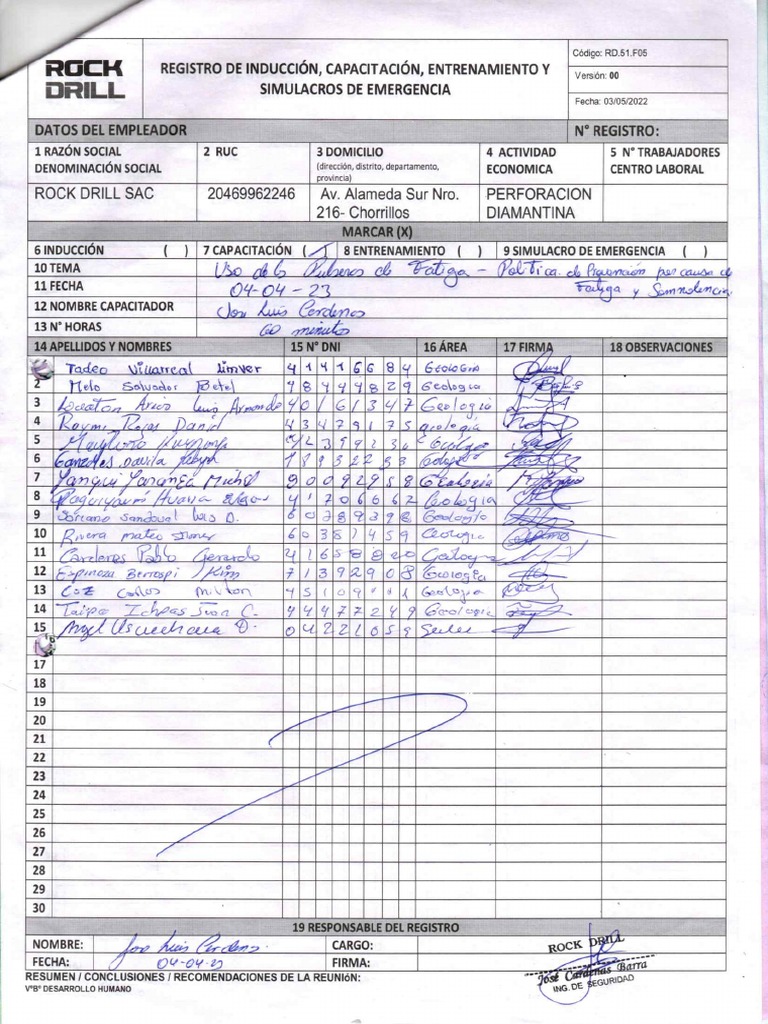 ROCK DRILL
REGISTRO DE INDUCCIÓN, CAPACITACIÓN, ENTRENAMIENTO Y
SIMULACROS DE EMERGENCIA
Código: RD.51.F05
Versión: 00
Fecha: 03/05/2022
DATOS DEL EMPLEADOR N° REGISTRO:
1 RAZÓN SOCIAL DENOMINACIÓN SOCIAL
2 RUC
3 DOMICILIO (dirección, distrito, departamento, provincia)
4 ACTIVIDAD ECONOMICA
5 N° TRABAJADORES CENTRO LABORAL
ROCK DRILL SAC
20469962246
Av. Alameda Sur Nro. 216- Chorrillos
PERFORACION DIAMANTINA
MARCAR (X)
6 INDUCCIÓN ( ) 7 CAPACITACIÓN ( ) 8 ENTRENAMIENTO ( ) 9 SIMULACRO DE EMERGENCIA ( )
10 TEMA Uso de Pulseras de Fatiga - Politica de Prevención por causa de
Fatiga y Somnolencia
11 FECHA 04-04-23
12 NOMBRE CAPACITADOR Jose Luis Cardenas
13 N° HORAS 60 minutos
14 APELLIDOS Y NOMBRES 15 N° DNI 16 ÁREA 17 FIRMA 18 OBSERVACIONES
Tadeo Villarreal Limver 41416684 Geologia
2 Melo Salvador Betel 48444829 Geologia
3 Arias Luis Armando 40161347 Geologia
4 Raymi Rojas Daniel 43479175 geologia
5
6 Davila
7 Yanqui Michel Geologia
8 41706662 Geologia
9 Soriano Sandoval Luis D. 60789398 Geologia
10 Rivera mateo 60381459 Geologia
11 Cardenas Pablo Gerardo
12 Espinoza Berrospi Kim 71392908 Geologia
13 Coz Carlos Milton Geologia
14 Taipe Juan C. 44477249 Geologia
15 Angel D. 04221059
17
18
19
20
21
22
23
24
25
26
27
28
29
30
19 RESPONSABLE DEL REGISTRO
NOMBRE: Jose Luis Cardenas. CARGO:
FECHA: 04-04-23 FIRMA:
ROCK DRILL
José Cárdenas Ibarra
ING. DE SEGURIDAD
RESUMEN / CONCLUSIONES / RECOMENDACIONES DE LA REUNIÓN:
V°B° DESARROLLO HUMANO